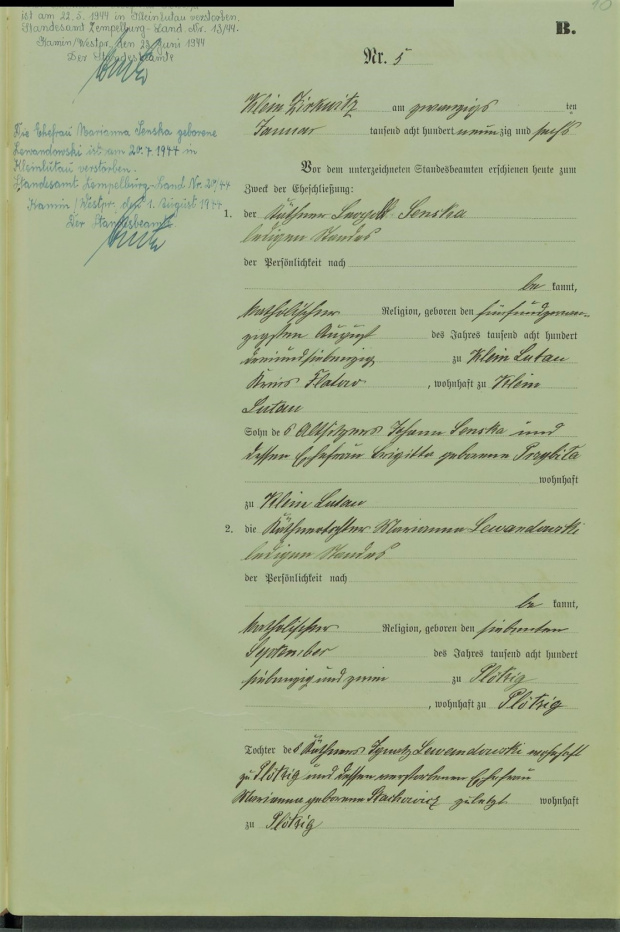 ist am 22. 5. 1944 in Kleinlutau verstorben.
Standesamt Zempelburg-Land. Nr. 13/44.
Kamin/Westpr. den 23. Juni 1944
Der Standesbeamte
Die Ehefrau Marianna Senska geborene
Lewandowski ist am 20.7.1944 in
Kleinlutau verstorben.
Standesamt Zempelburg-Land Nr. 20/44
Kamin/Westpr. den 1. August 1944
Der Standesbeamte
10
B.
Nr. 5
Klein Zirkwitz am zwanzigs ten
Januar tausend acht hundert neun zig und sechs
Vor dem unterzeichneten Standesbeamten erschienen heute zum
Zweck der Eheschließung:
1. der Käthner Senska
ledigen Standes
der Persönlichkeit nach
be kannt,
katholischer Religion, geboren den fünfundzwan-
zigsten August des Jahres tausend acht hundert
dreiundsiebenzig zu Klein Lutau
Kreis Flatow, wohnhaft zu Klein
Lutau
Sohn des Altsitzers Johann Senska und
dessen Ehefrau Brigitta geborene Przybila
wohnhaft
zu Klein Lutau
2. die Käthnertochter Marianna Lewandowski
ledigen Standes
der Persönlichkeit nach
be kannt,
katholischer Religion, geboren den siebenten
September des Jahres tausend acht hundert
siebenzig und zu Plötzig
, wohnhaft zu Plötzig
Tochter des Käthners Ignatz Lewandowski wohnhaft
zu Plötzig und dessen verstorbenen Ehefrau
Marianna geborene Stachowicz zuletzt wohnhaft
zu Plötzig